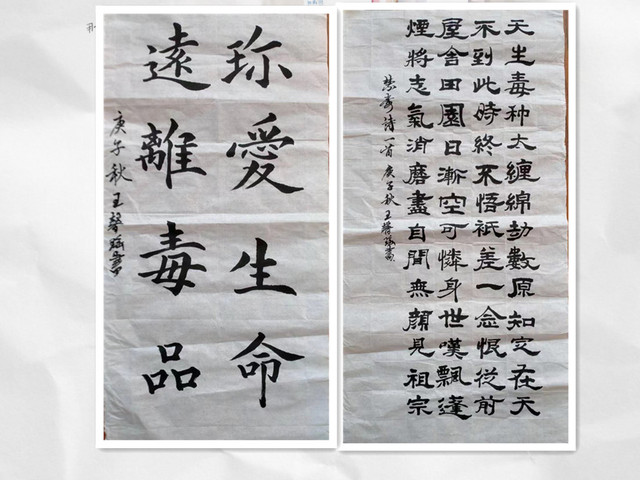 珎愛生命
遠離毒品
庚午秋王書
天生毒种太纏綿劫數原知定在天
不到此時終不悟祇差一念恨從前
屋舍田園日漸空可憐身世嘆飄蓬
煙將志氣消磨盡自問無顏見祖宗
禁毒诗一首庚子秋王書